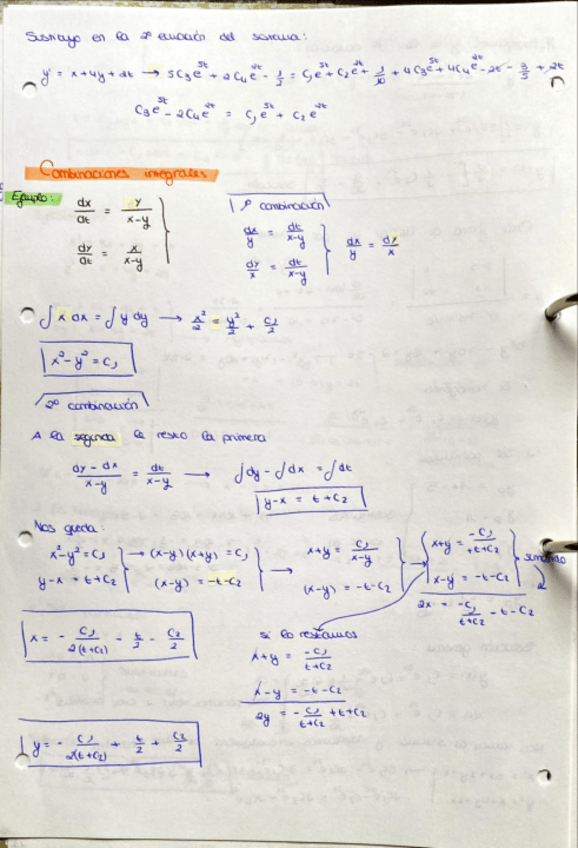 Sustituyo en la 2ª ecuación del sistema:
y' = x + 4y + 2t → 5C₃e^5t + 2C₄e^2t - 1/5 = C₁e^5t + C₂e^2t + 1/10 + 4C₃e^5t + 4C₄e^2t - 2t - 3/5 + 2t
C₃e^5t - 2C₄e^2t = C₁e^5t + C₂e^2t
Combinaciones integrales
Ejemplo:
dx/dt = y/(x-y)
dy/dt = x/(x-y)
1ª combinación
dx/y = dt/(x-y)
dy/x = dt/(x-y)
dx/y = dy/x
∫x dx = ∫y dy → x²/2 = y²/2 + C₁/2
x² - y² = C₁
2ª combinación
A la segunda le resto la primera
(dy - dx)/(x-y) = dt/(x-y) → ∫dy - ∫dx = ∫dt
y - x = t + C₂
Nos queda:
x² - y² = C₁ → (x-y)(x+y) = C₁
y - x = t + C₂ (x-y) = -t - C₂
→ x + y = C₁/(x-y)
(x-y) = -t - C₂
→ x + y = -C₁/(t+C₂)
x - y = -t - C₂
sumando
2x = -C₁/(t+C₂) - t - C₂
x = - C₁/(2(t+C₂)) - t/2 - C₂/2
si lo restamos
x + y = -C₁/(t+C₂)
x - y = -t - C₂
2y = - C₁/(t+C₂) + t + C₂
y = - C₁/(2(t+C₂)) + t/2 + C₂/2